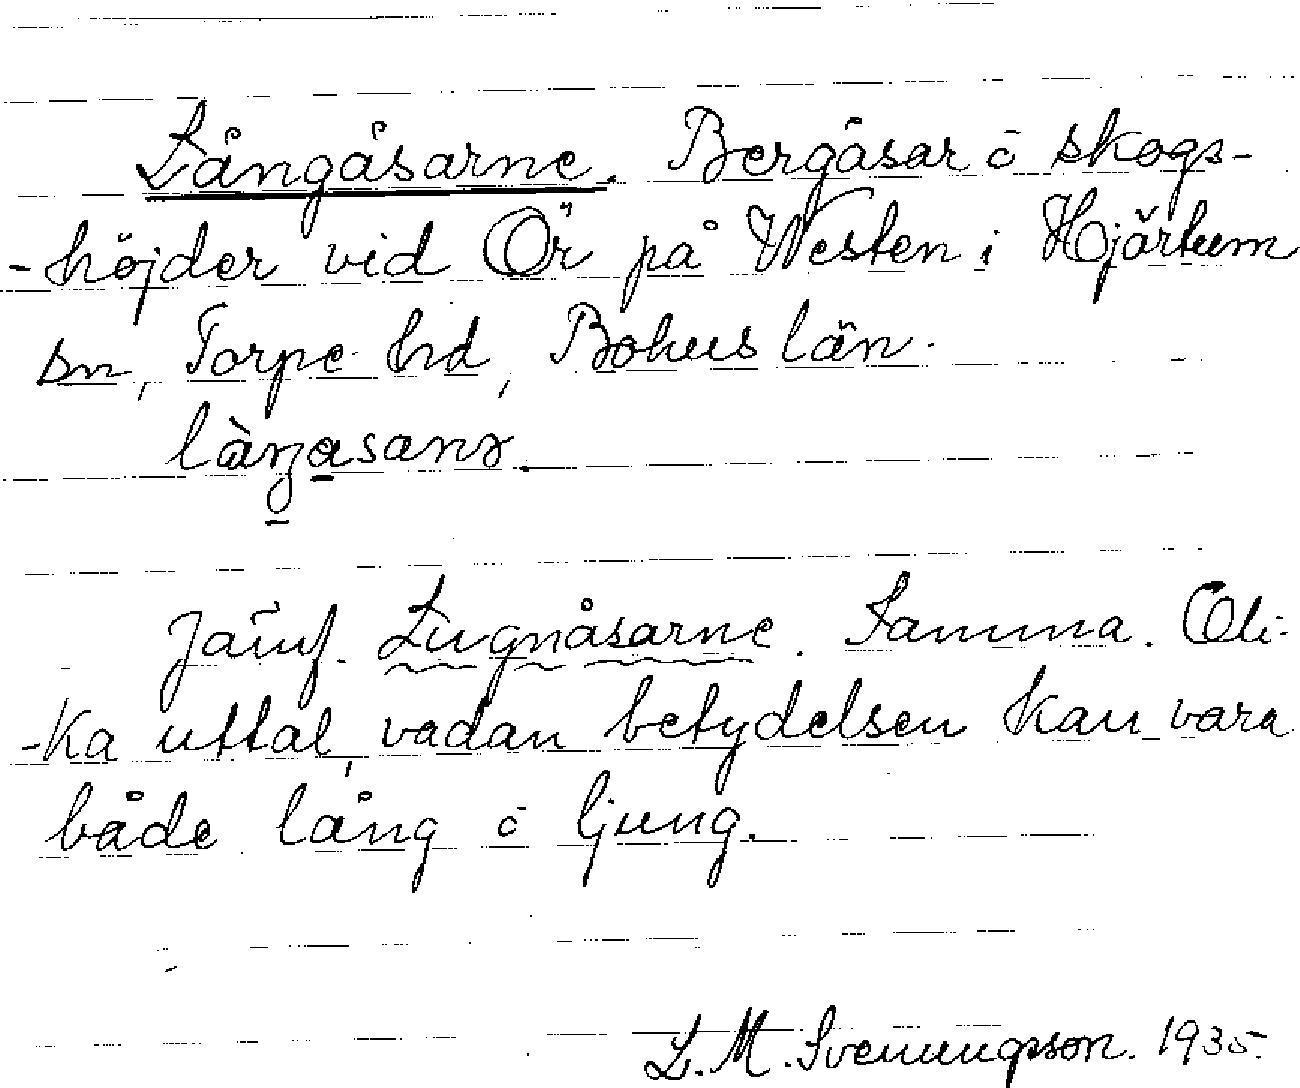 Långåsarne. Bergåsar ō skogs-
-höjder vid Ör på Westen i Hjärtum
sn, Torpe hd, Bohuslän.

Jämf. Lugnåsarne. Samma. Oli-
-ka uttal, vadan betydelsen kan vara
både lång ō ljung.
L. M. Svenungsson. 1935.